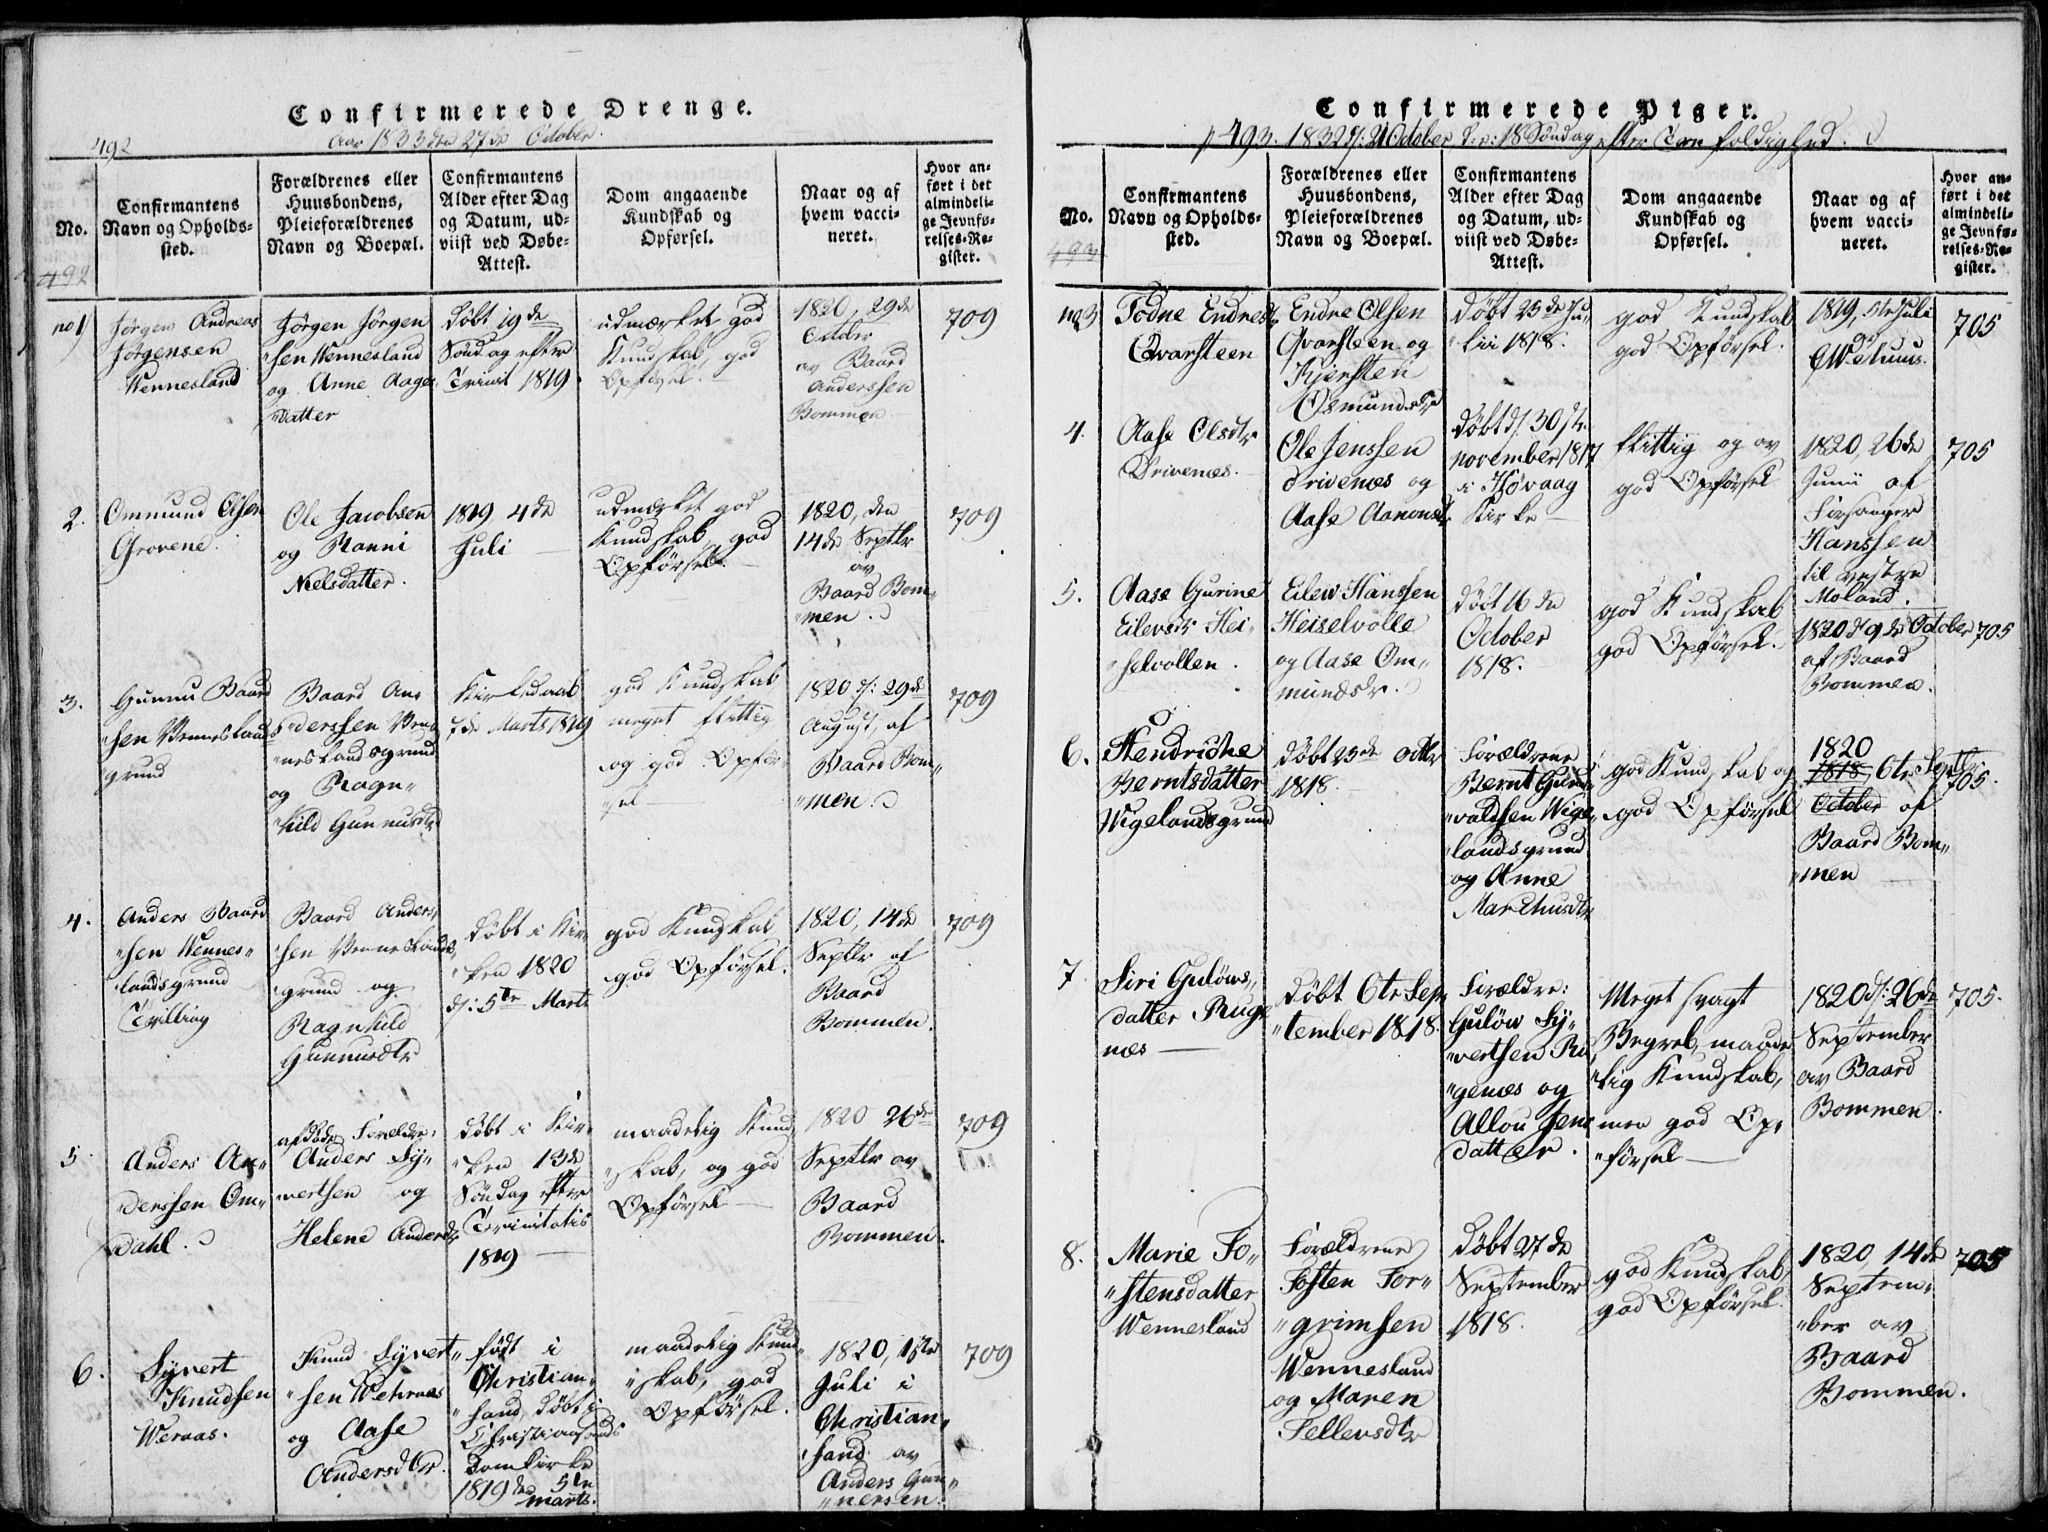 Confirmerede Drenge.
492
Aar 1833 den 27de October.
No.
Confirmantens
Navn og Opholds-
sted.
Forældrenes eller
Huusbondens,
Pleieforældrenes
Navn og Boepæl.
Confirmantens
Alder efter Dag
og Datum, ud-
viist ved Døbe-
Attest.
Dom angaaende
Kundskab og
Opførsel.
Naar og af
hvem vacci-
neret.
Hvor an-
ført i det
almindeli-
ge Jevnfø-
relses-Re-
gister.
492
no 1
Jørgen Andreas
Jørgensen
Wennesland
Jørgen Jørgen
"sen Wennesland
og Anne Aage
Datter
Døbt 19de
Søndag efter
Trinit 1819.
udmærket god
Kundskab, god
Opførsel.
1820, 29de
October
av Baard
Anderssen
Bommen
709
2.
Ommund Olsen
Grovene.
Ole Jacobsen
og Ranni
Nielsdatter.
1819, 4de
Juli
udmærket god
Kundskab, god
Opførsel.
1820, den
14de Septbr
av
Baard Bom"
"men.
709
3.
Gunnu Baard
"sen Venneslands
grund
Baard An"
"derssen Ven"
"neslandsgrund
og Ragn"
"hild Gunnusdtr
Kirkedaab
7de Marts 1819
god Kundskab
meget flittig
og god Opfør"
"sel
1820 d: 29de
August, af
Baard Bom"
"men.
709
4.
Anders Baard
"sen Wennes"
landsgrund
Tvilling
Baard Anders
sen Venneslands
grund og
Ragnhild
Gunnusdtr
Døbt i Kir"
"ken 1820
d: 5te Marts
god Kundskab
god Opførsel.
1820, 14de
Septbr af
Baard
Bommen.
709
5.
Anders An"
"derssen Om"
dahl.
afdøde Forældre:
Anders Sy"
"vertsen og
Helene Andersdtr
Døbt i Kir"
"ken 13de
Søndag efter
Trinitatis
1819
maadelig Kund
"skab, og god
Opførsel
1820 26de
Septbr av
Baard
Bommen.
709
6.
Syvert
Knudsen
Weraas.
Knud Syvert"
"sen Wehraas
og Aase
Andersdtr.
født i
Christian"
"sand, Døbt i
Christiansands
Domkirke
1819 den 5te
marts.
maadelig Kund"
"skab, god
Opførsel.
1820, 15de
Juli i
Christian"
"sand av
Anders Gun"
"nersen.
709
Confirmerede Piger.
p 493. 1832 d: 21 October d.e: 18 Søndag efter Trefoldighed.
No.
Confirmantens
Navn og Opholds-
sted.
Forældrenes eller
Huusbondens,
Pleieforældrenes
Navn og Boepæl.
Confirmantens
Alder efter Dag
og Datum, ud-
viist ved Døbe-
Attest.
Dom angaaende
Kundskab og
Opførsel.
Naar og af
hvem vacci-
neret.
Hvor an-
ført i det
almindeli-
ge Jevnfø-
relses-Re-
gister.
493
no 3
Todne Endresdr
Qvarsteen
Endre Olsen
Qvarsteen og
Kjersten
Osmundsdtr
Døbt 25de Ju"
"lii 1818.
god Kundskab
god Opførsel.
1819, 5te Juli
705
4.
Aase Olsdtr
Drivenæs.
Ole Jenssen
Drivenæs og
Aase Aanonsdtr
Døbt d: 30te
november 1817
i Høvaag
Kirke
flittig og av
god Opførsel
1820, 26de
Junii af
Forsanger
Hanssen
til vestre
Moland.
705
5.
Aase Gurine
Eilevsdr Hei"
"selvollen.
Eilew Hanssen
Heiselvolle
og Aase Om"
mundsdr.
Døbt 16de
October
1818.
god Kundskab
god Opførsel.
1820 d 9de October
af Baard
Bommen.
705
6.
Hendriche
Berntsdatter
Wigelandsgrund
Døbt 25de Octbr
1818.
Forældrene
Bernt Gun"
"valdsen Wige"
landsgrund
og Anne
Marchusdtr
god Kundskab og
god Opførsel
1820
1818, 6te Septbr
October af
Baard Bom"
"men
705.
7
Siri Guløws"
datter Ruge
næs
Døbt 6te Sep"
"tember 1818.
Forældre:
Guløw Sy"
"vertsen Ru
"genæs og
Allou Jens
datter.
Meget svagt
Begreb, maade
"lig Kundskab,
men god Op"
"førsel
1820 d: 26de
September
av Baard
Bommen.
705.
8.
Marie To"
"stensdatter
Wennesland
Forældrene
Tosten Tor"
"grimsen
Wennesland
og Maren
Tellevsdtr
Døbt 27de
September
1818.
god Kundskab,
god Opførsel.
1820, 14de
Septem"
"ber av
Baard
Bommen.
705